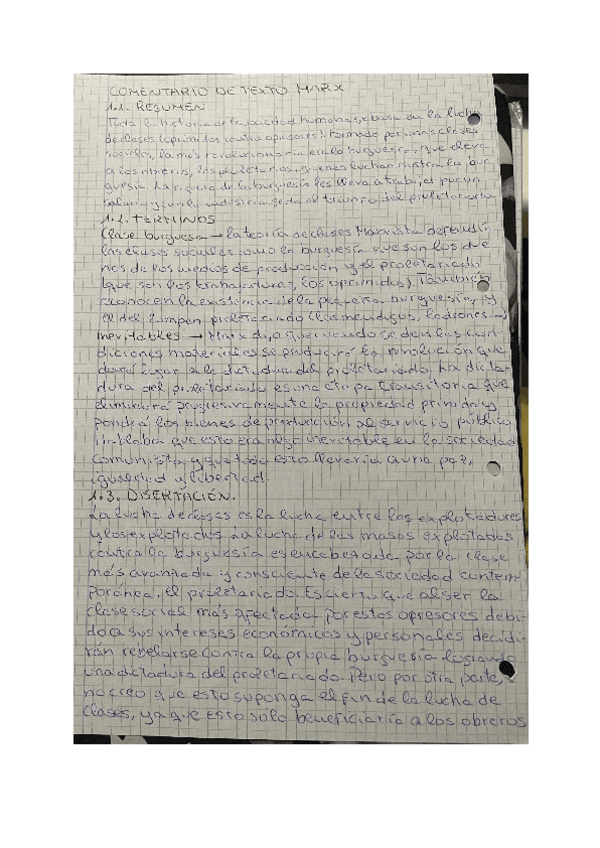 COMENTARIO DE TEXTO MARX
1.1. RESUMEN
Toda la historia de la sociedad humana se basa en la lucha
de clases (oprimidos contra opresores). Formado por unas clases
sociales, la más revolucionaria era la burguesía, que
a los obreros, los proletarios, quienes luchan contra la bur
guesía. La riqueza de la burguesía les lleva a trabajar por un
salario y
1.2. TÉRMINOS
Clase burguesa → la teoría de clases Marxista defendía
las clases sociales como la burguesía que son los due
ños de los medios de producción y el proletariado
(que son los trabajadores, los oprimidos). También
conocen la existencia de la pequeña burguesía, y
el del lumpen proletariado (los mendigos, ladrones →)
Inevitables → Marx dijo que cuando se den las con
diciones materiales se producirá la revolución que
dará lugar a la dictadura del proletariado. La dicta
dura del proletariado es una etapa transitoria que
eliminará progresivamente la propiedad privada y
pondrá los bienes de producción al servicio público
Hablaba que esto era algo inevitable en la sociedad
comunista, y que todo esto llevaría a una paz,
igualdad y libertad.
1.3. DISERTACIÓN.
La lucha de clases es la lucha entre los explotadores
y los explotados. La lucha de las masas explotadas
contra la burguesía es encabezada por la clase
más avanzada y consciente de la sociedad contem
poránea, el proletariado. Es cierto que al ser la
clase social más afectada por estos opresores debi
do a sus intereses económicos y personales decidi
rán rebelarse contra la propia burguesía logrando
una dictadura del proletariado. Pero por otra parte,
no creo que esto suponga el fin de la lucha de
clases, ya que esto solo beneficiaría a los obreros